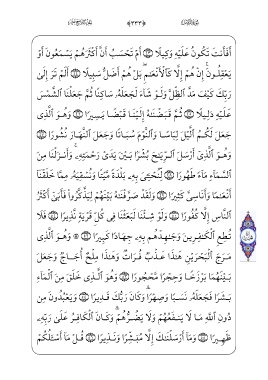 أَفَأَنتَ تَكُونُ عَلَيْهِ وَكِيلًا ﴿٤٣﴾ أَمْ تَحْسَبُ أَنَّ أَكْثَرَهُمْ يَسْمَعُونَ أَوْ
يَعْقِلُونَ ۚ إِنْ هُمْ إِلَّا كَٱلْأَنْعَٰمِ بَلْ هُمْ أَضَلُّ سَبِيلًا ﴿٤٤﴾ أَلَمْ تَرَ إِلَىٰ
رَبِّكَ كَيْفَ مَدَّ ٱلظِّلَّ وَلَوْ شَآءَ لَجَعَلَهُۥ سَاكِنًا ثُمَّ جَعَلْنَا ٱلشَّمْسَ
عَلَيْهِ دَلِيلًا ﴿٤٥﴾ ثُمَّ قَبَضْنَٰهُ إِلَيْنَا قَبْضًا يَسِيرًا ﴿٤٦﴾ وَهُوَ ٱلَّذِى
جَعَلَ لَكُمُ ٱلَّيْلَ لِبَاسًا وَٱلنَّوْمَ سُبَاتًا وَجَعَلَ ٱلنَّهَارَ نُشُورًا ﴿٤٧﴾
وَهُوَ ٱلَّذِىٓ أَرْسَلَ ٱلرِّيَٰحَ بُشْرًۢا بَيْنَ يَدَىْ رَحْمَتِهِۦ ۚ وَأَنزَلْنَا مِنَ
ٱلسَّمَآءِ مَآءً طَهُورًا ﴿٤٨﴾ لِّنُحْـِۧىَ بِهِۦ بَلْدَةً مَّيْتًا وَنُسْقِيَهُۥ مِمَّا خَلَقْنَآ
أَنْعَٰمًا وَأَنَاسِىَّ كَثِيرًا ﴿٤٩﴾ وَلَقَدْ صَرَّفْنَٰهُ بَيْنَهُمْ لِيَذَّكَّرُوا۟ فَأَبَىٰٓ أَكْثَرُ
ٱلنَّاسِ إِلَّا كُفُورًا ﴿٥٠﴾ وَلَوْ شِئْنَا لَبَعَثْنَا فِى كُلِّ قَرْيَةٍ نَّذِيرًا ﴿٥١﴾ فَلَا
تُطِعِ ٱلْكَٰفِرِينَ وَجَٰهِدْهُم بِهِۦ جِهَادًا كَبِيرًا ﴿٥٢﴾ ۞ وَهُوَ ٱلَّذِى
مَرَجَ ٱلْبَحْرَيْنِ هَٰذَا عَذْبٌ فُرَاتٌ وَهَٰذَا مِلْحٌ أُجَاجٌ وَجَعَلَ
بَيْنَهُمَا بَرْزَخًا وَحِجْرًا مَّحْجُورًا ﴿٥٣﴾ وَهُوَ ٱلَّذِى خَلَقَ مِنَ ٱلْمَآءِ
بَشَرًا فَجَعَلَهُۥ نَسَبًا وَصِهْرًا ۗ وَكَانَ رَبُّكَ قَدِيرًا ﴿٥٤﴾ وَيَعْبُدُونَ مِن
دُونِ ٱللَّهِ مَا لَا يَنفَعُهُمْ وَلَا يَضُرُّهُمْ ۗ وَكَانَ ٱلْكَافِرُ عَلَىٰ رَبِّهِۦ
ظَهِيرًا ﴿٥٥﴾ وَمَآ أَرْسَلْنَٰكَ إِلَّا مُبَشِّرًا وَنَذِيرًا ﴿٥٦﴾ قُلْ مَآ أَسْـَٔلُكُمْ